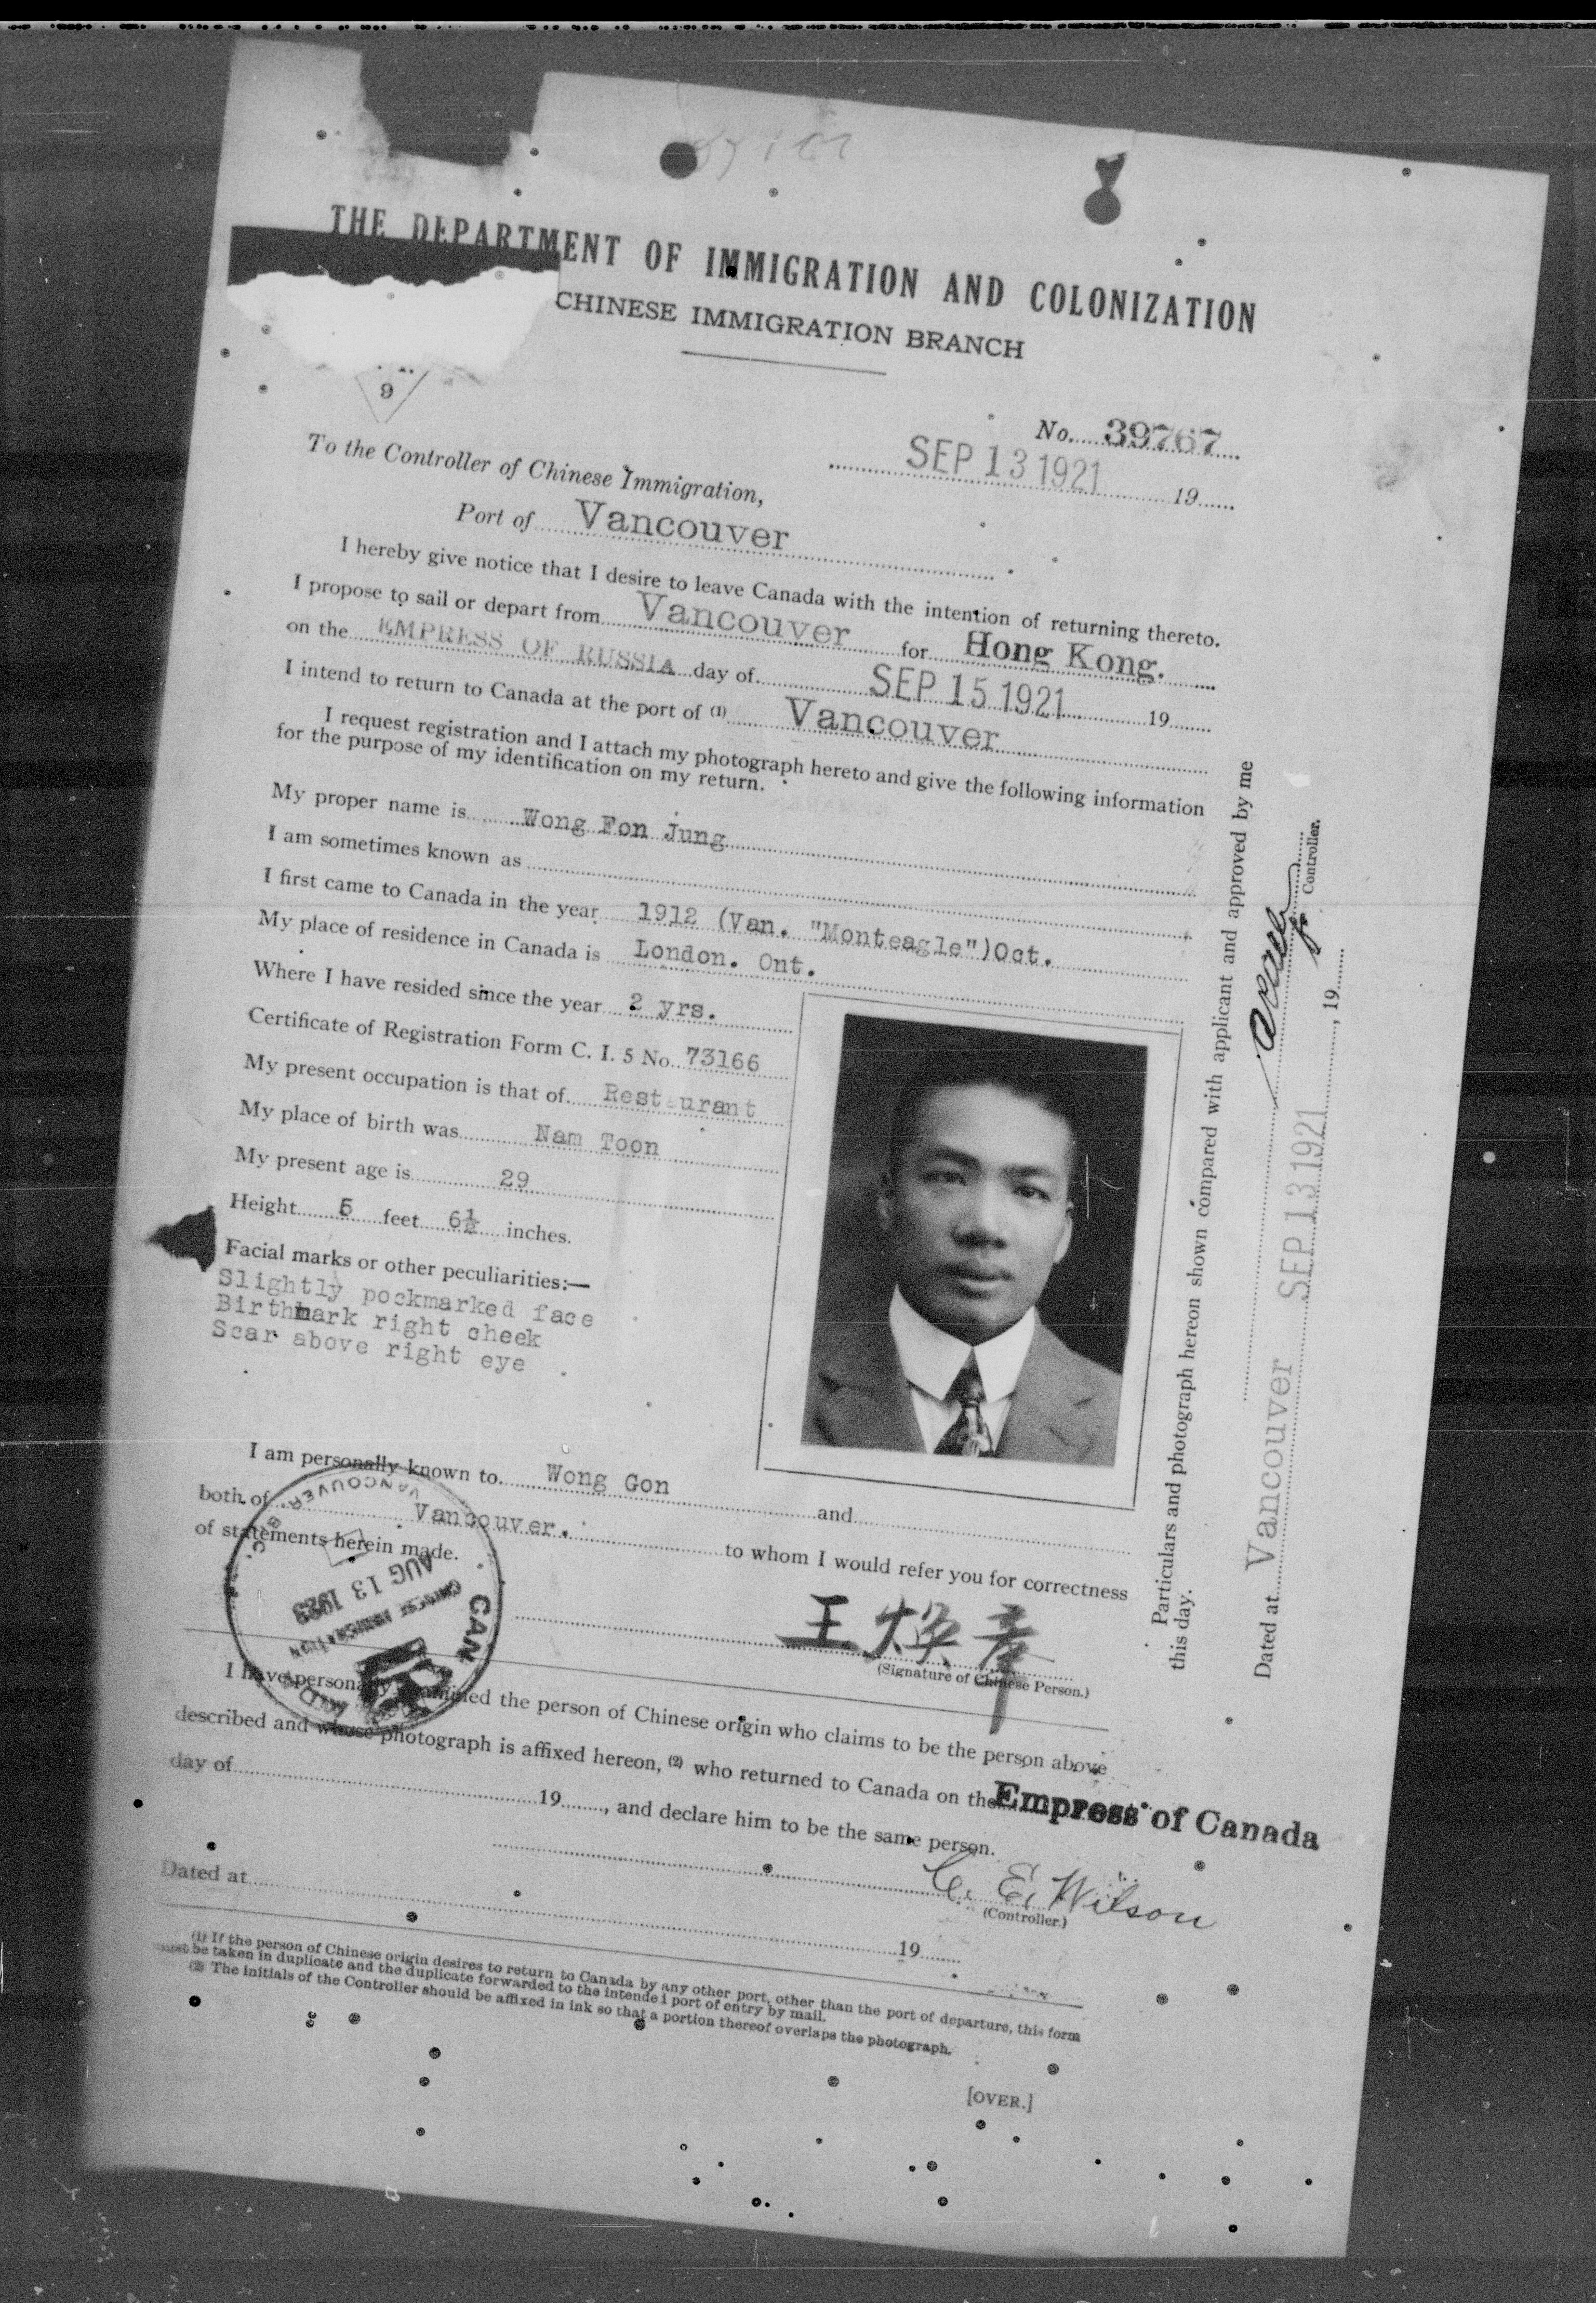 THE DEPARTMENT OF IMMIGRATION AND COLONIZATION
CHINESE IMMIGRATION BRANCH
9
No. 39767
SEP 13 1921 19
To the Controller of Chinese Immigration,
Port of Vancouver
I hereby give notice that I desire to leave Canada with the intention of returning thereto.
I propose to sail or depart from Vancouver for Hong Kong.
on the EMPRESS OF RUSSIA day of SEP 15 1921 19
I intend to return to Canada at the port of (1) Vancouver
I request registration and I attach my photograph hereto and give the following information
for the purpose of my identification on my return.
My proper name is Wong Fon Jung
I am sometimes known as
I first came to Canada in the year 1912 (Van. "Monteagle") Oct.
My place of residence in Canada is London. Ont.
Where I have resided since the year 2 yrs.
Certificate of Registration Form C. I. 5 No. 73166
My present occupation is that of Restaurant
My place of birth was Nam Toon
My present age is 29
Height 5 feet 6½ inches.
Facial marks or other peculiarities:—
Slightly pockmarked face
Birthmark right cheek
Scar above right eye
I am personally known to Wong Gon and
both of Vancouver. to whom I would refer you for correctness
of statements herein made.
VANCOUVER, B.C.
AUG 13 1923
CHINESE IMMIGRATION
CAN
王煥彥
(Signature of Chinese Person.)
I have personally examined the person of Chinese origin who claims to be the person above
described and whose photograph is affixed hereon, (2) who returned to Canada on the Empress of Canada
day of 19, and declare him to be the same person.
C. E. Wilson
(Controller.)
Dated at 19
(1) If the person of Chinese origin desires to return to Canada by any other port, other than the port of departure, this form
must be taken in duplicate and the duplicate forwarded to the intended port of entry by mail.
(2) The initials of the Controller should be affixed in ink so that a portion thereof overlaps the photograph.
[OVER.]
Particulars and photograph hereon shown compared with applicant and approved by me
this day.
Controller.
Dated at Vancouver SEP 13 1921, 19